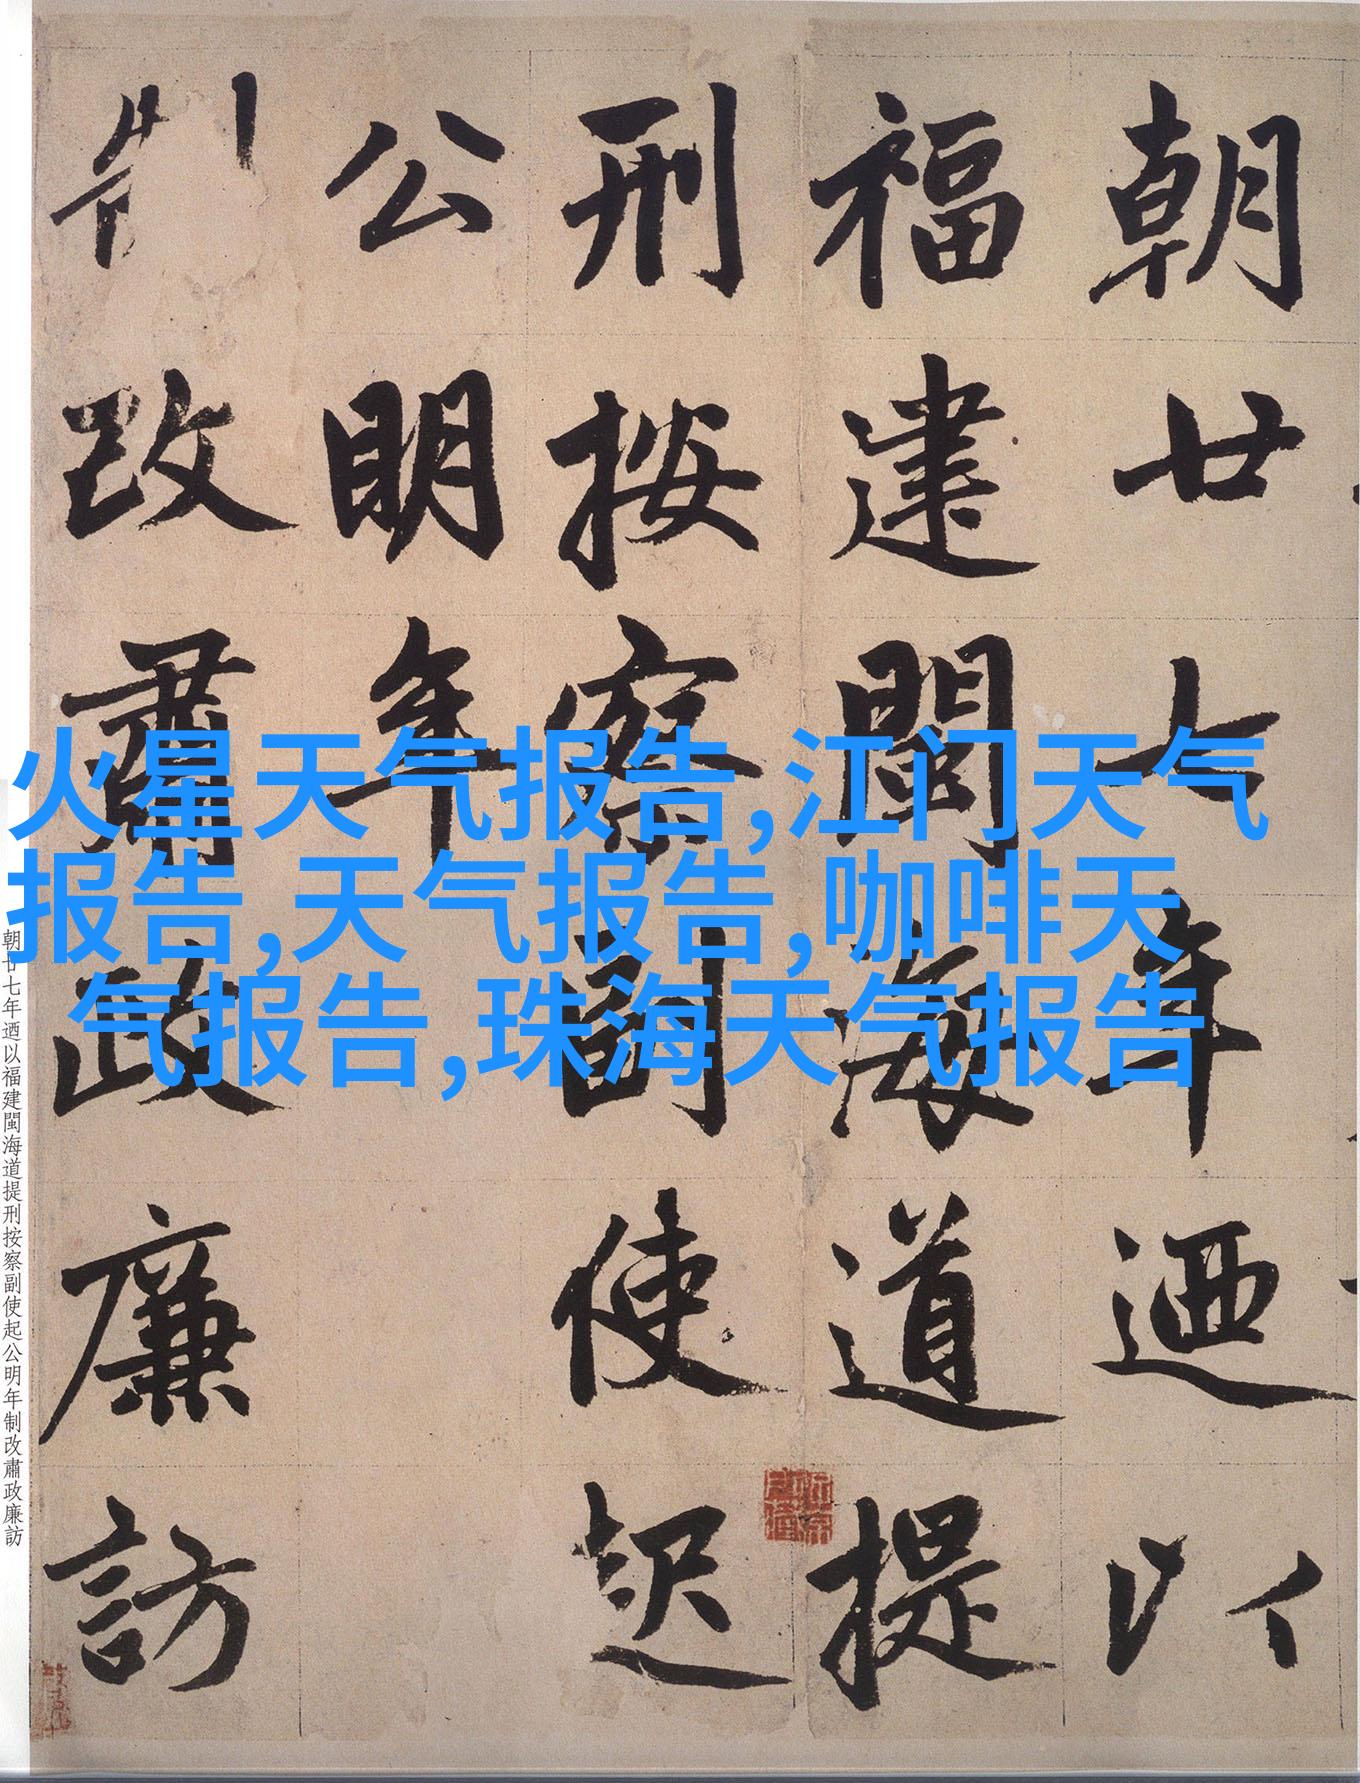 朝廿七年迺以
福建閩海道提
刑按察副使起
公明年
制改肅政廉訪
火星天气报告,江门天气
报告,天气报告,咖啡天
气报告,珠海天气报告
朝廿七年迺以福建閩海道提刑按察副使起公明年制改肅政廉訪